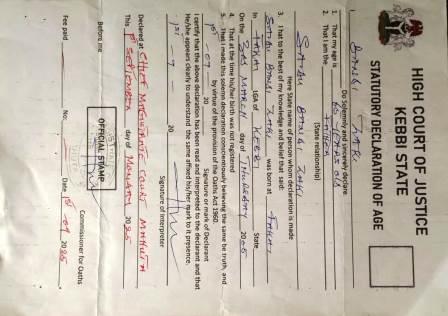 HIGH COURT OF JUSTICE
KEBBI STATE
STATUTORY DECLARATION OF AGE
I, BANGI ZAKI
Do Solemnly and sincerely declare
1. That my age is 65 YEARS OLD
2. That I am the FATHER
(State relationship)
BANGI ZAKI
Here State name of person whom declaration is made
3. I that to the best of my knowledge and belief that said:
BANGI ZAKI was born at
In LGA of KEBBI State
On the 3RD MARCH day of THURSDAY 2005
4. That at the time his/her birth was not registered
5. That I made this solemn declaration conscientiously believing the same be truth, and by virtue of the provision of the Oaths Act 1960
09 20
Signature or mark of Declarant
I certify that the above declaration has been read and interpreted to the declarant and that
He/she appears clearly to understand the same affixed his/her mark to it presence.
20
Signature of Interpreter
Declared at CHIEF MAGISTRATE COURT
This 1ST SEPTEMBER day of MONDAY 2025
Before me
OFFICIAL STAMP
Commissioner for Oaths
Fee paid No: Date 09 2025